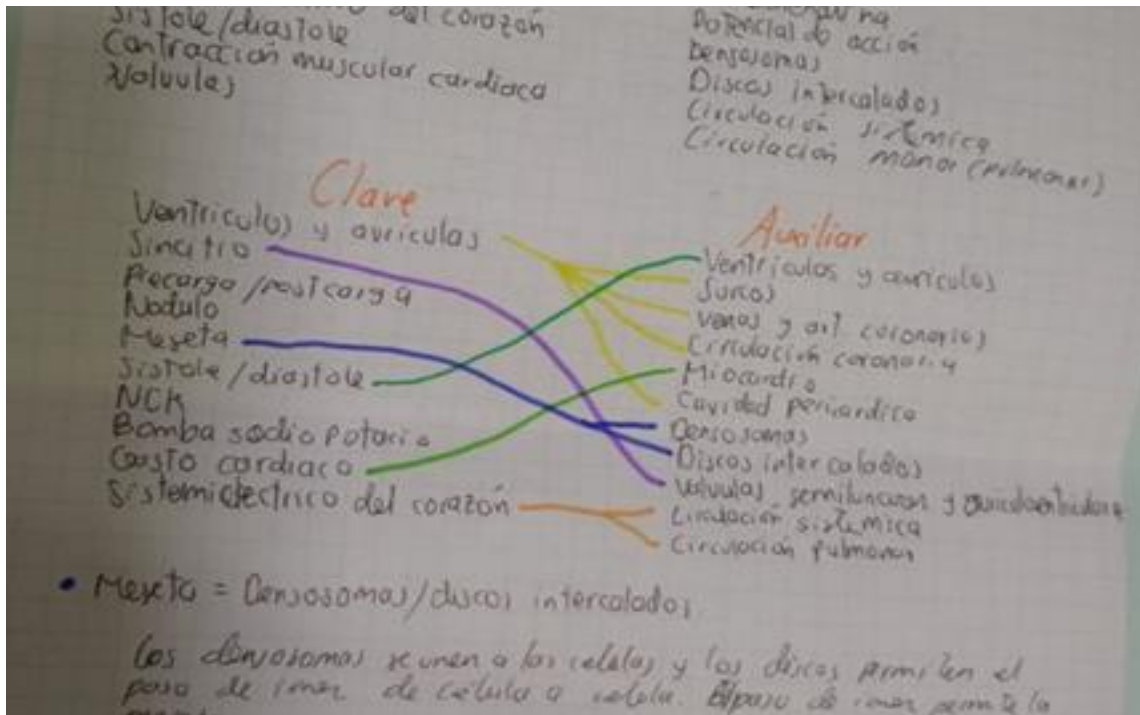 del corazón
Sístole/diastole
Contracción muscular cardiaca
Valvulas
Potencial de acción
Densosomas
Discos intercalados
Circulación sistémica
Circulación menor (pulmonar)
Clave
Ventriculos y auriculas
Sincitio
Precarga/postcarga
Nodulo
Meseta
Sistole/diastole
NCK
Bomba sodio potacio
Gasto cardiaco
Sistema eléctrico del corazón
Auxiliar
Ventriculos y auriculas
Surcos
Venas y art. coronarias
Circulación coronaria
Miocardio
Cavidad pericardica
Densosomas
Discos intercalados
Valvulas semilunares y
Circulación sistemica
Circulación pulmonar
• Meseta = Densosomas/discos intercalados
Los densosomas se unen a las celulas y los discos permiten el
paso de iones de celula a celula. El paso de iones permite la